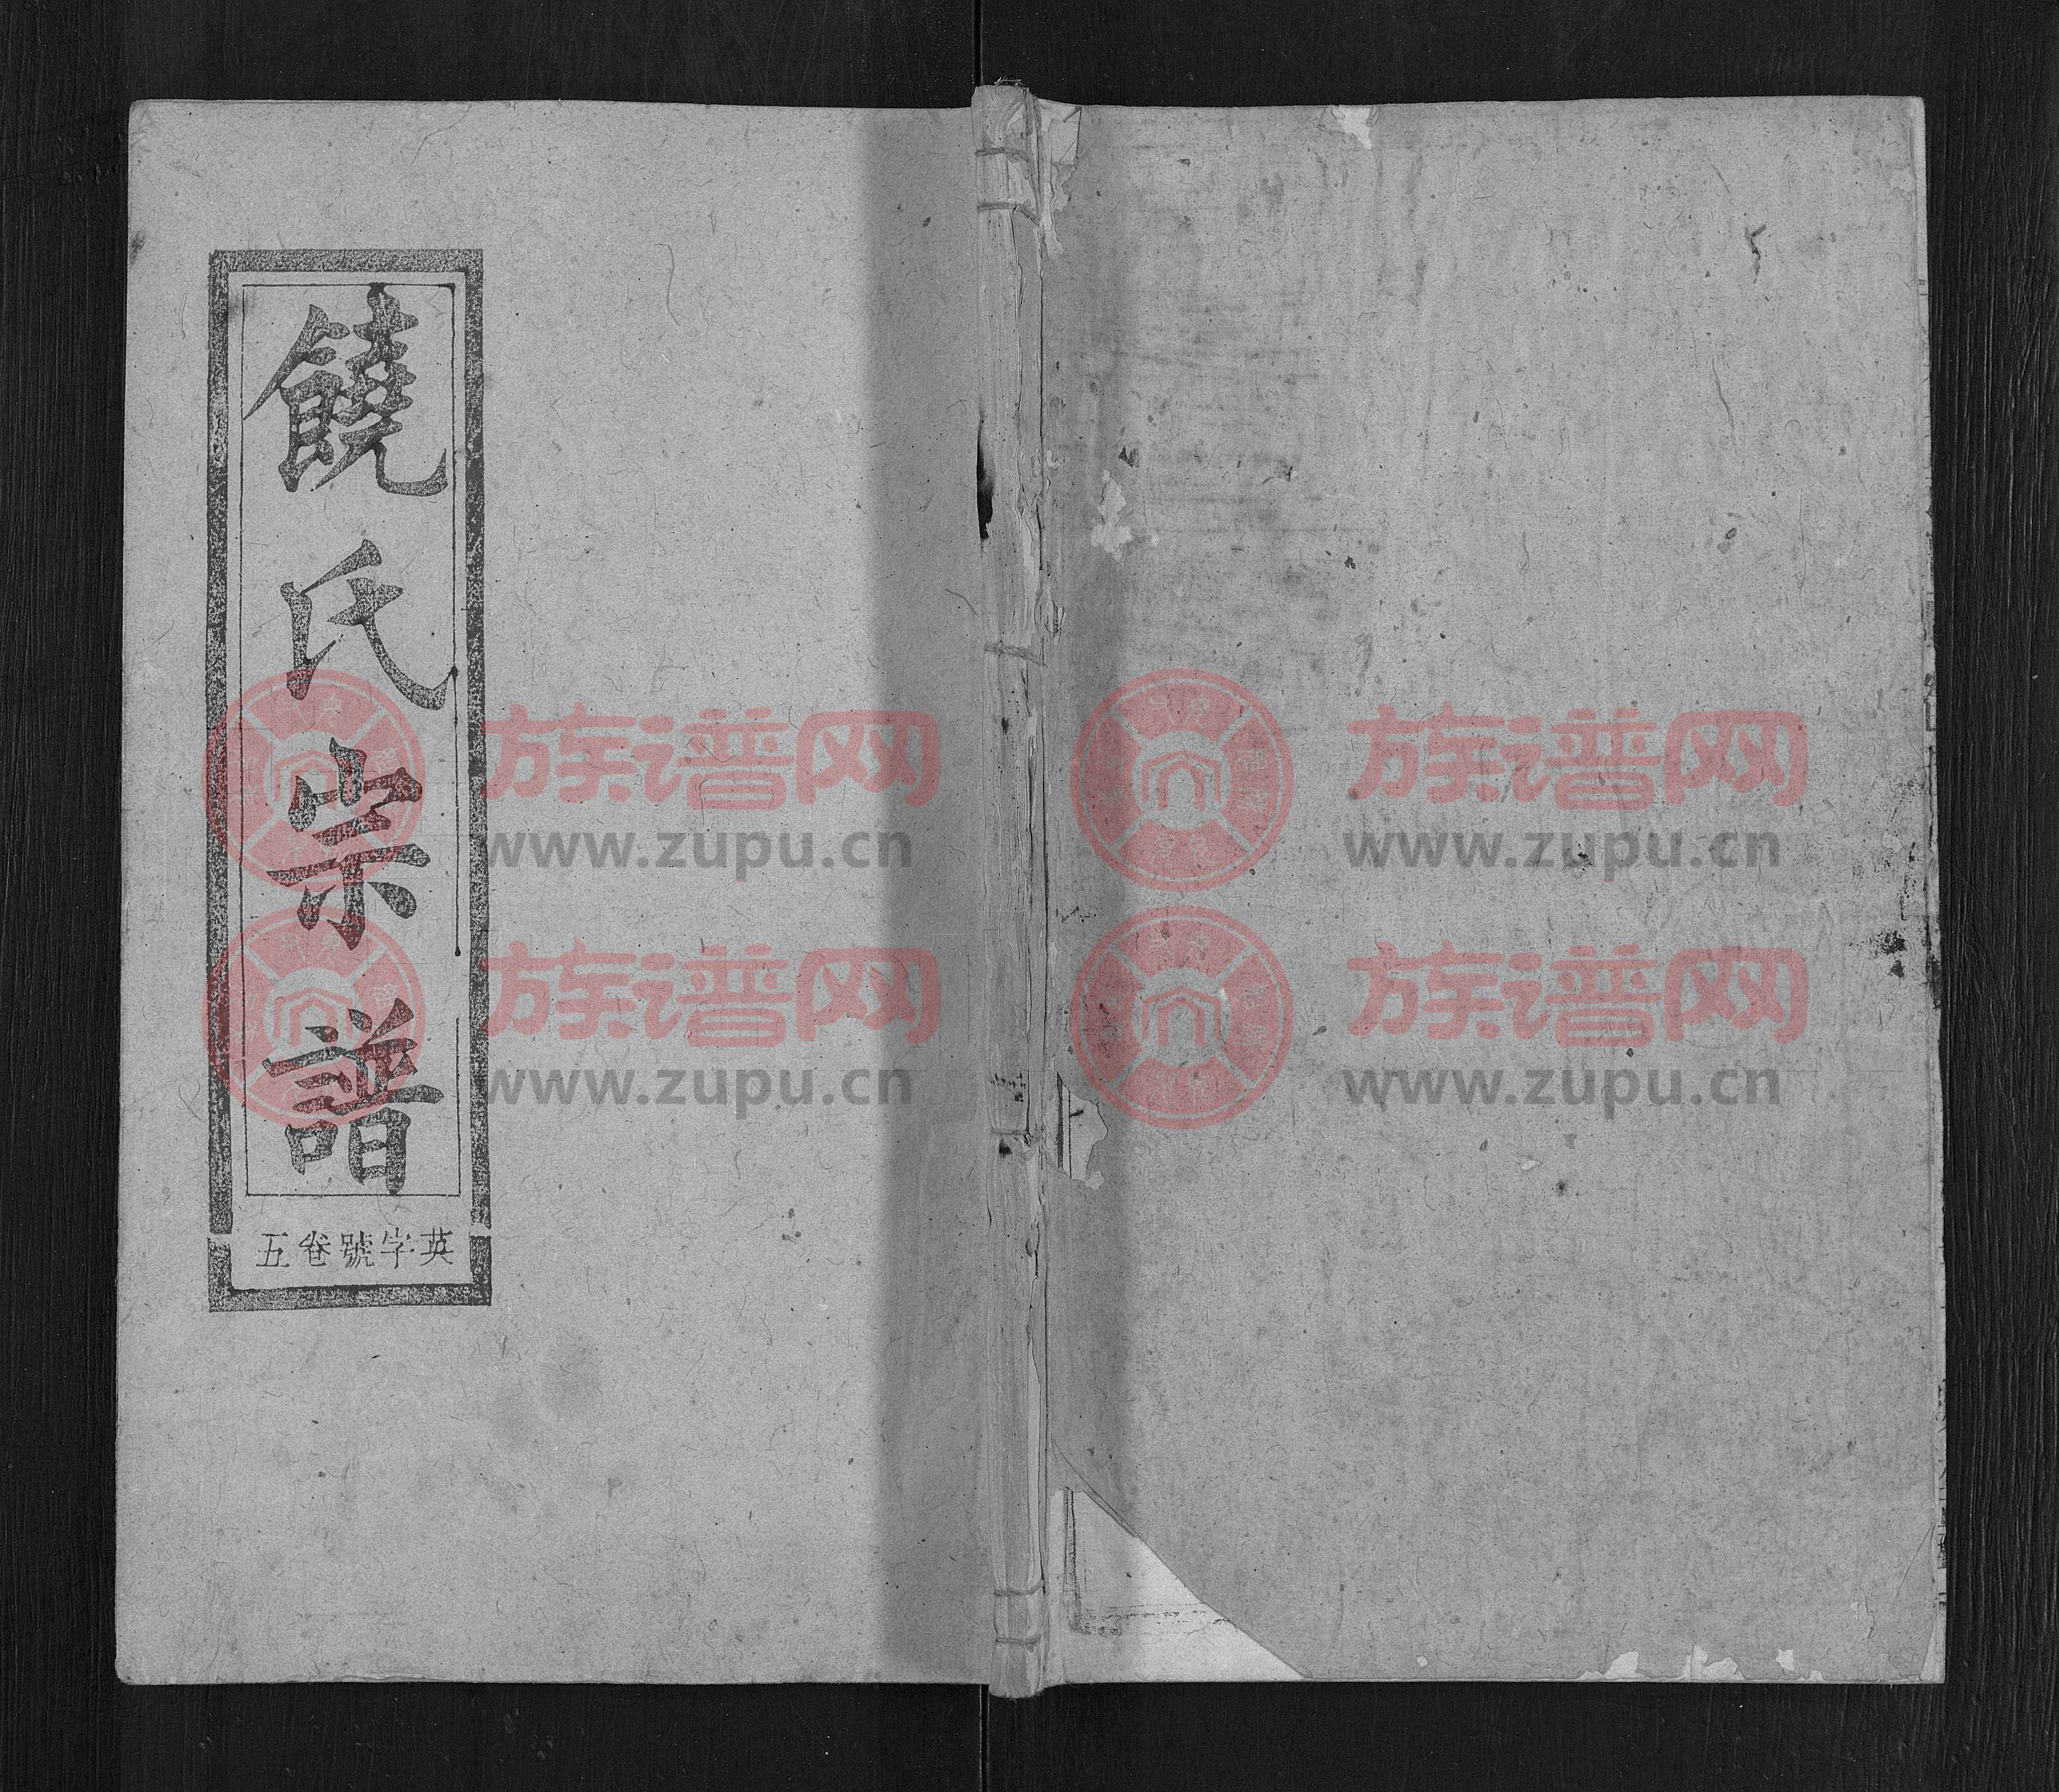 饒氏崇譜
英字號卷五
族谱网
www.zupu.cn
族谱网
www.zupu.cn
族谱网
www.zupu.cn
族谱网
www.zupu.cn